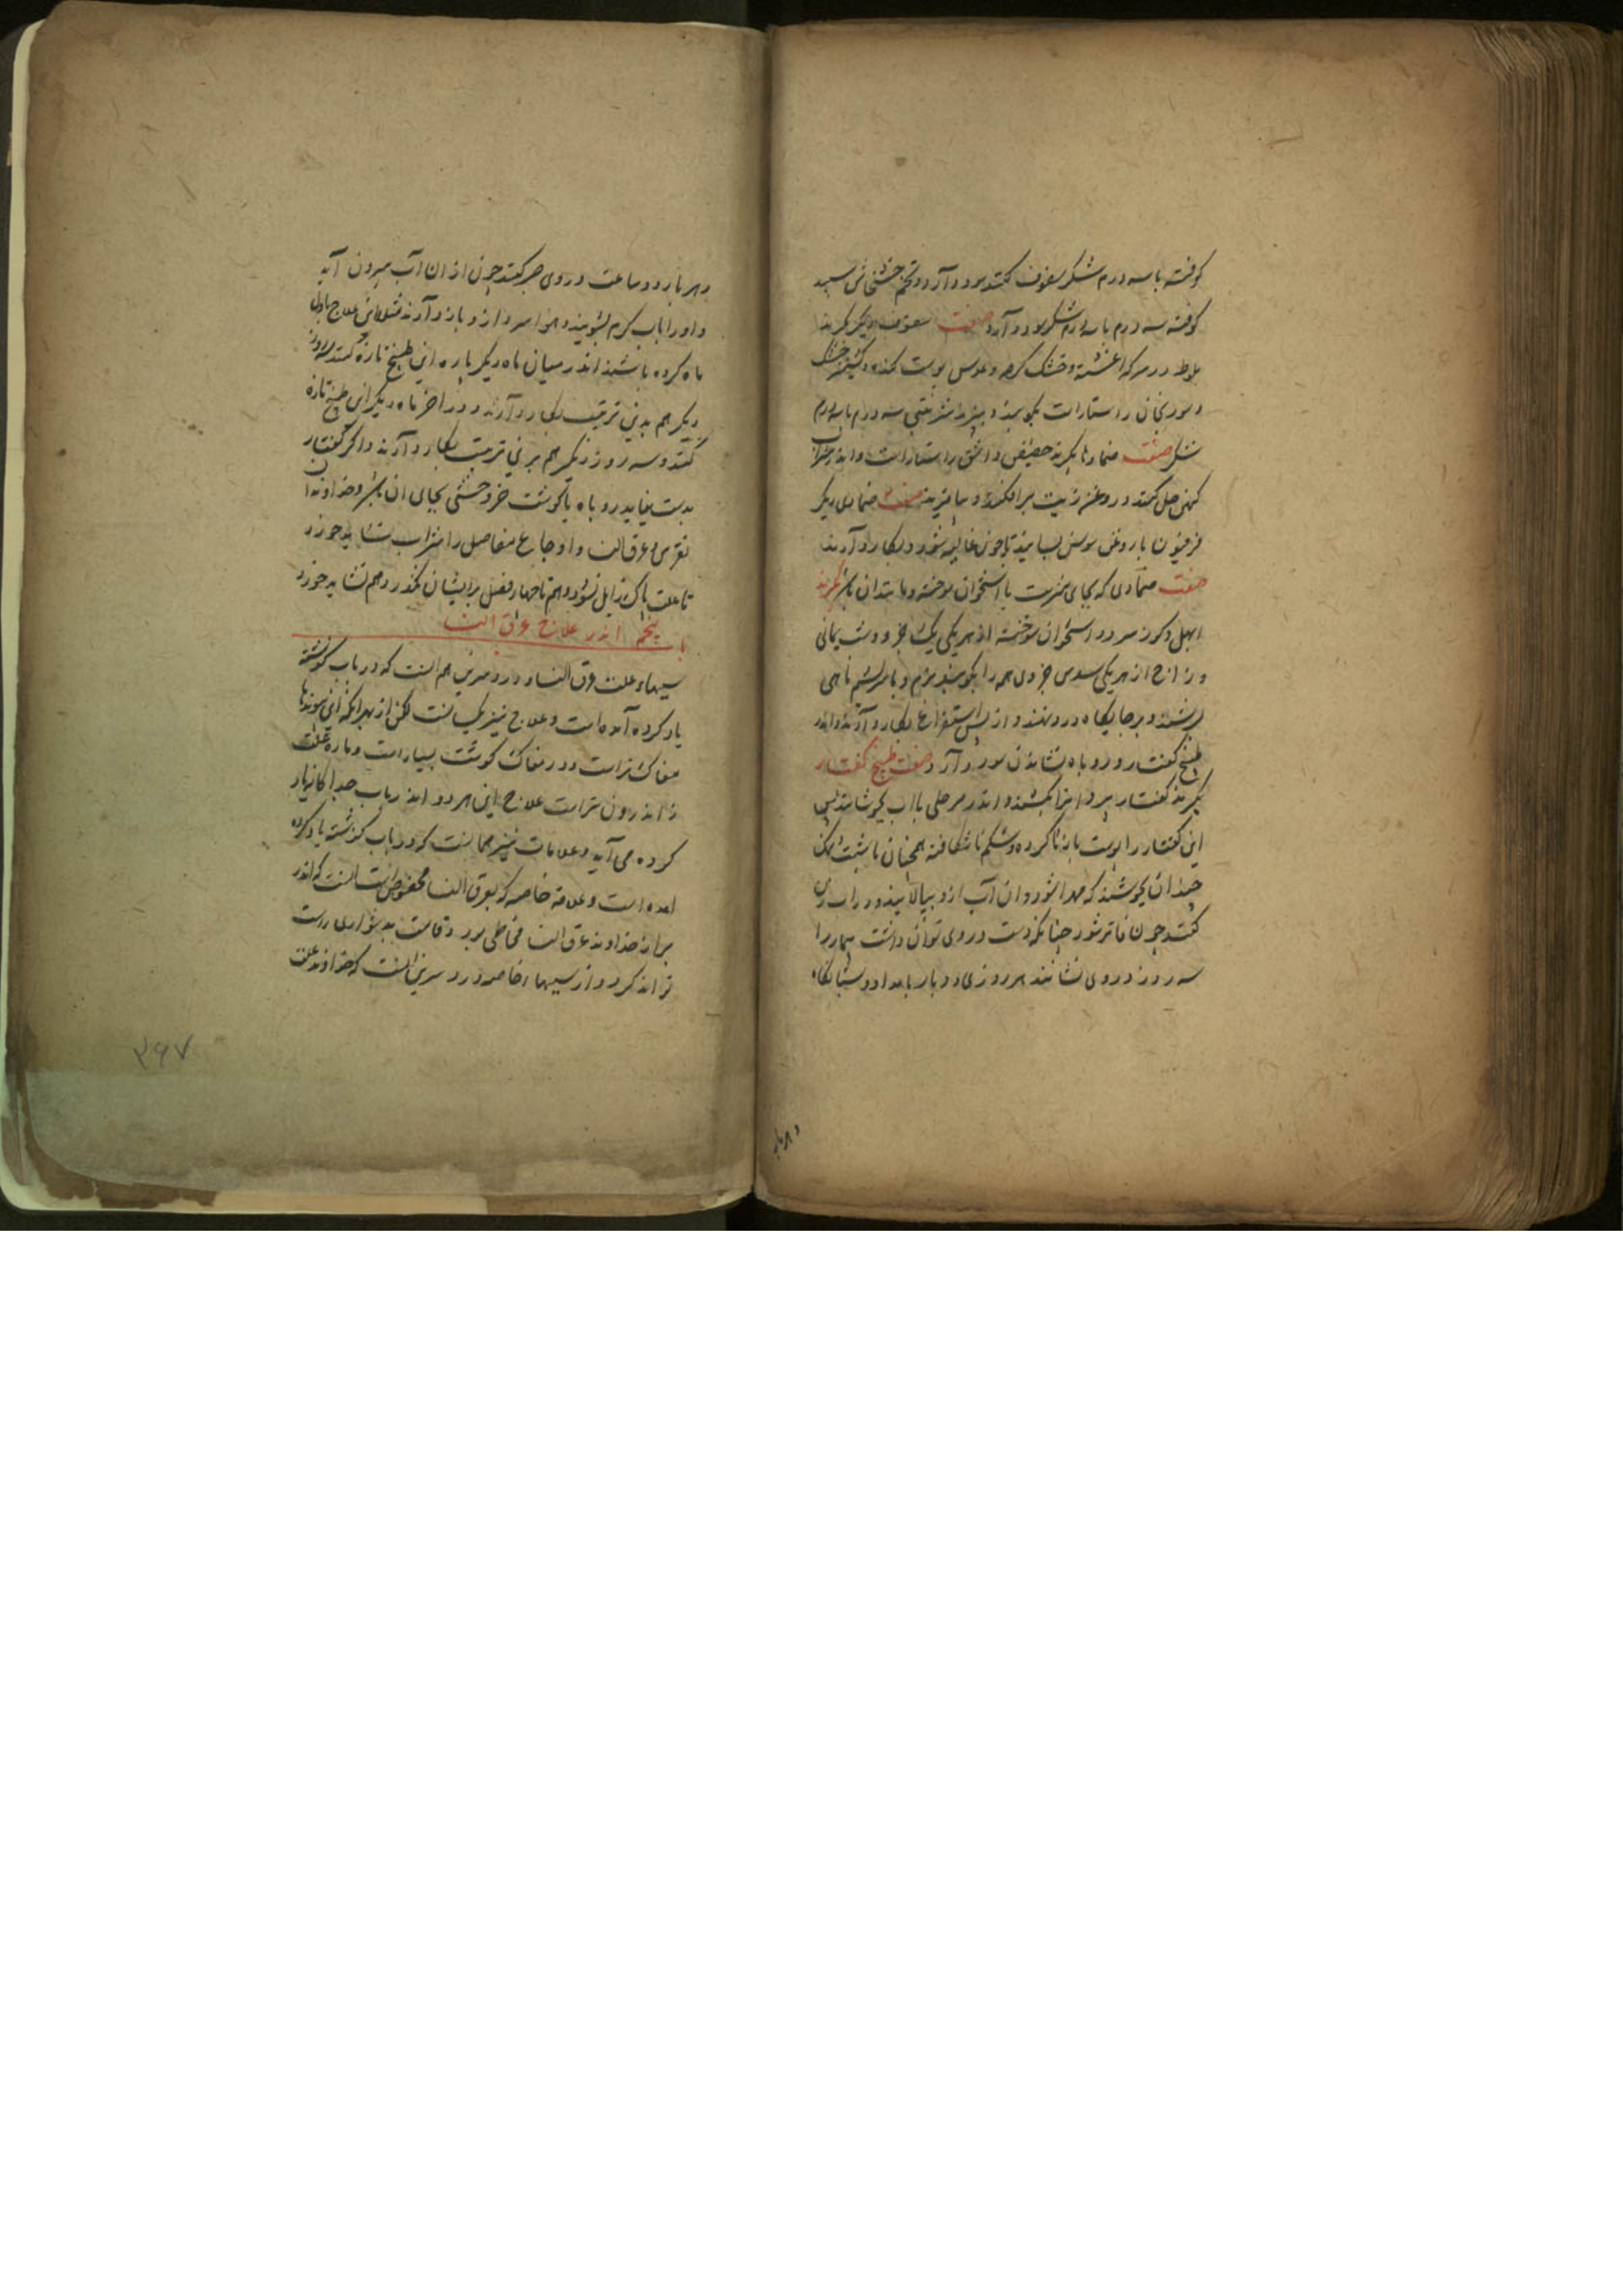 کوفته با سه درم شکر سفوف کنند سود دارد و تخم خشخاش سپید
کوفته سه درم با سه درم شکر سود دارد صفت سفوف دیگر بگیرند
بلوط در سرکه اغشته و خشک کرده و عدس بوست کنده و کشنیز خشک
و سورنجان راستاراست بکوبند و ببزند شربتی سه درم با سه درم
شکر صفت ضمادها بگیرند حضیض و اشق راستاراست و اندر شراب
کهن حل کنند و روغن زیت برافکنند و بیامیزند صفت ضمادی دیگر
فرفیون با روغن سوسن بسایند تا چون غالیه شود و بکار دارند
صفت ضمادی که بجای منست با استخوان سوخته و ماندان بگیرند
ابهل و کوز سرو و استخوان سوخته از هر یکی یک جزو و شب یمانی
و زاج از هر یکی سدس جزوی همه را بکوبند نرم و با سریشم ماهی
بسرشند و بر جایکاه درد نهند و از پس استفراغ بکار دارند و اندر
طبیخ کفتار و روباه نشاندن سود دارد صفت طبیخ کفتار
بگیرند کفتار پیر و انرا بکشند و اندر مرجلی با آب بجوشانند پس
این کفتار را بوست بازناکرده و شکم ناشکافته همچنان
چندان بجوشند که مهرا شود و ان آب ازو ببالایند و در ابزن
کنند چون فاتر شود چنانکه دست در وی توان داشت بیمار را
سه روز در وی نشانند هر روزی دو بار بامداد و شبانگاه
و هر بار
و هر بار دو ساعت در وی صبر کنند چون از ان آب بیرون آید
و او را باب کرم بشویند و هوا سرد ازو باز دارند مثلا این علاج باول
ماه کرده باشند اندر میان ماه دیکر باره این طبیخ تازه کنند سه روز
دیکر هم بدین ترتیب بکار دارند و در اخر ماه دیکر این طبیخ تازه
کنند و سه روز دیکر هم برین ترتیب بکار دارند و اکر کفتار
بدست نیاید روباه یا کوشت خر وحشی بجای ان بکار و خداوندان
نقرس و عرق النسا و اوجاع مفاصل را شراب نشاید خورد
تا علت پاک زایل نشود و هم تا چهار فصل برایشان نکذرد هم نشاید خورد
باب پنجم اندر علاج عرق النسا
سببها و علت عرق النسا و درد سرین هم انست که در باب کذشته
یاد کرده آمده است و علاج نیز یکیست لکن از بهر انکه این پیوندها
مغاک تراست و در مغاک کوشت بسیار است و ماده علت
اندرون تر است علاج این هر دو اندر باب جداکانه یاد
کرده می آید و علامات نیز همانست که در باب کذشته یاد کرده
امده است و علامة خاصه که بعرق النسا مخصوص است انست که اندر
براز خداوند عرق النسا مخاطی بود و قامت بدشواری راست
تواند کرد و از سببهاء خاصه درد سرین انست که خداوند علت
۳۶۷